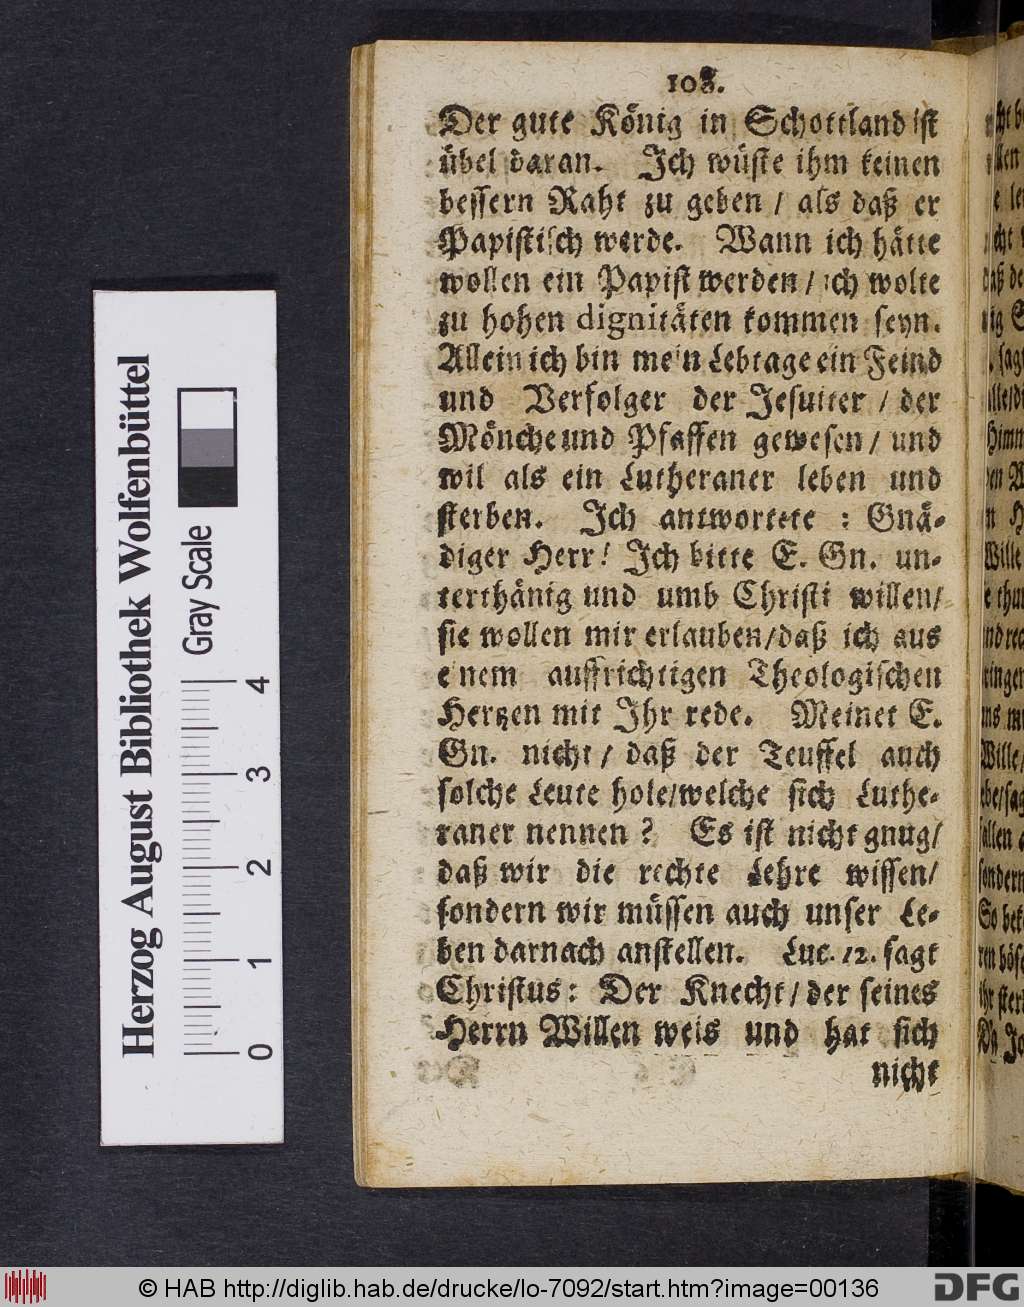 108.
Der gute König in Schottland ist
übel daran. Ich wüste ihm keinen
bessern Raht zu geben / als daß er
Papistisch werde. Wann ich hätte
wollen ein Papist werden / ich wolte
zu hohen dignitäten kommen seyn.
Allein ich bin mein Lebtage ein Feind
und Verfolger der Jesuiter / der
Mönche und Pfaffen gewesen / und
wil als ein Lutheraner leben und
sterben. Ich antwortete : Gnä-
diger Herr! Ich bitte E. Gn. un-
terthänig und umb Christi willen/
sie wollen mir erlauben/daß ich aus
einem auffrichtigen Theologischen
Hertzen mit Ihr rede. Meinet E.
Gn. nicht / daß der Teuffel auch
solche Leute hole/welche sich Luthe-
raner nennen ? Es ist nicht gnug/
daß wir die rechte Lehre wissen/
sondern wir müssen auch unser Le-
ben darnach anstellen. Luc. 12. sagt
Christus: Der Knecht / der seines
Herrn Willen weis und hat sich
nicht
Herzog August Bibliothek Wolfenbüttel
Gray Scale
0 1 2 3 4
© HAB http://diglib.hab.de/drucke/lo-7092/start.htm?image=00136
DFG